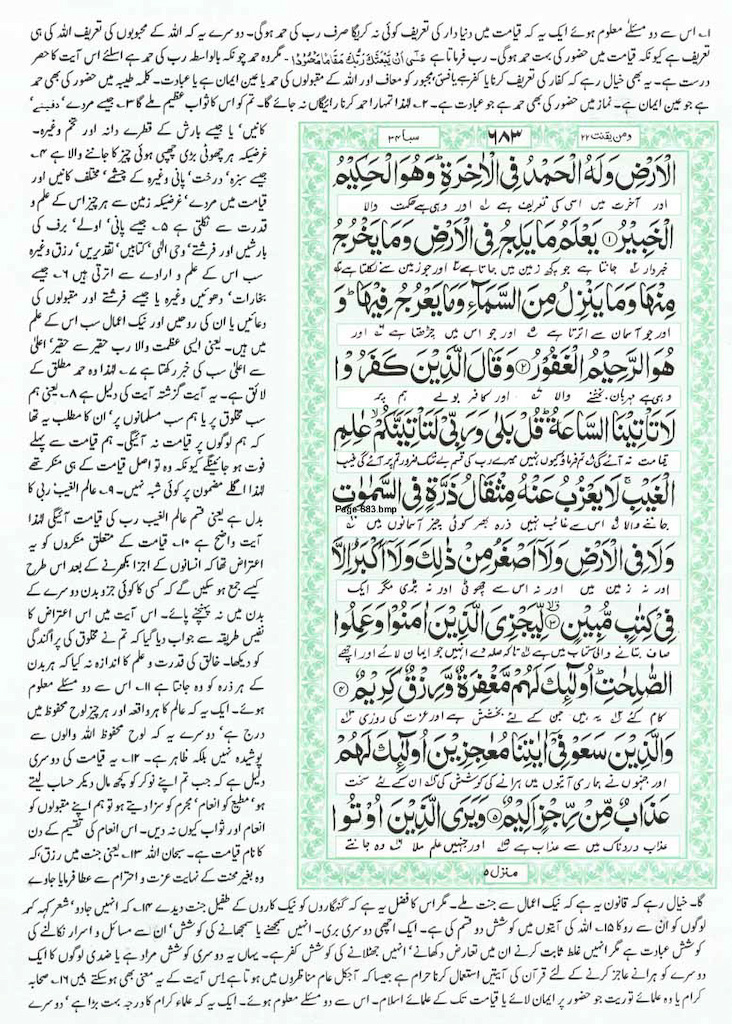 ۱۔ اس سے دو مسئلے معلوم ہوئے ایک یہ کہ قیامت میں دنیا دار کی تعریف کوئی نہ کریگا صرف رب کی حمد ہوگی۔ دوسرے یہ کہ اللہ کے محبوبوں کی تعریف اللہ کی ہی
تعریف ہے کیونکہ قیامت میں حضور کی بہت حمد ہوگی۔ رب فرماتا ہے عَسٰٓی اَنْ یَّبْعَثَکَ رَبُّکَ مَقَامًا مَّحْمُوْدًا۔ مگر وہ حمد چونکہ بالواسطہ رب کی حمد ہے اسلئے اس آیت کا حصر
درست ہے۔ یہ بھی خیال رہے کہ کفار کی تعریف کرنا یا کفر ہے یا فسق یا مجبور کو معاف اور اللہ کے مقبولوں کی حمد یا عین ایمان ہے یا عبادت۔ کلمہ طیبہ میں حضور کی بھی حمد
ہے جو عین ایمان ہے۔ نماز میں حضور کی بھی حمد ہے جو عبادت ہے۔ ۲۔ لہٰذا تمہارا حمد کرنا رائیگاں نہ جائے گا۔ تم کو اس کا ثواب عظیم ملے گا ۳۔ جیسے مردے، دفینے،
کانیں، یا جیسے بارش کے قطرے دانہ اور تخم وغیرہ۔
غرضیکہ ہر چھوٹی بڑی چھپی ہوئی چیز کا جاننے والا ہے ۴۔
جیسے سبزہ، درخت، پانی وغیرہ کے چشمے، مختلف کانیں اور
قیامت میں مردے، غرضیکہ زمین سے ہر چیز اس کے علم و
قدرت سے نکلتی ہے ۵۔ جیسے پانی، اولے، برف کی
بارشیں اور فرشتے، وحی الٰہی، کتابیں، تقدیریں، رزق وغیرہ
سب اس کے علم و ارادے سے اترتی ہیں ۶۔ جیسے
بخارات، دھوئیں وغیرہ یا جیسے فرشتے اور مقبولوں کی
دعائیں یا ان کی روحیں اور نیک اعمال سب اس کے علم
میں ہیں۔ یعنی ایسی عظمت والا رب حقیر سے حقیر، اعلیٰ
سے اعلیٰ سب کی خبر رکھتا ہے ۷۔ لہٰذا وہ حمد مطلق کے
لائق ہے۔ یہ آیت گزشتہ آیت کی دلیل ہے ۸۔ یعنی ہم
سب مخلوق پر یا ہم سب مسلمانوں پر، ان کا مطلب یہ تھا
کہ ہم لوگوں پر قیامت نہ آئیگی۔ ہم قیامت سے پہلے
فوت ہو جائینگے کیونکہ وہ تو اصل قیامت کے ہی منکر تھے
لہٰذا اگلے مضمون پر کوئی شبہ نہیں۔ ۹۔ عالم الغیب، ربی کا
بدل ہے یعنی قسم عالم الغیب رب کی قیامت آئیگی لہٰذا
آیت واضح ہے ۱۰۔ قیامت کے متعلق منکروں کو یہ
اعتراض تھا کہ انسانوں کے اجزا بکھرنے کے بعد اس طرح
کیسے جمع ہو سکیں گے کہ کسی کا کوئی جزو بدن دوسرے کے
بدن میں نہ پہنچنے پائے۔ اس آیت میں اس اعتراض کا
نفیس طریقہ سے جواب دیا گیا کہ تم نے مخلوق کی پراگندگی
کو دیکھا۔ خالق کی قدرت و علم کا اندازہ نہ کیا کہ ہر بدن
کے ہر ذرہ کو وہ جانتا ہے ۱۱۔ اس سے دو مسئلے معلوم
ہوئے۔ ایک یہ کہ عالم کا ہر واقعہ اور ہر چیز لوح محفوظ میں
درج ہے، دوسرے یہ کہ لوح محفوظ اللہ والوں سے
پوشیدہ نہیں بلکہ ظاہر ہے۔ ۱۲۔ یہ قیامت کی دوسری
دلیل ہے کہ جب تم اپنے نوکر کو کچھ مال دیکر حساب لیتے
ہو، مطیع کو انعام، مجرم کو سزا دیتے ہو تو ہم اپنے مقبولوں کو
انعام اور ثواب کیوں نہ دیں۔ اس انعام کی تقسیم کے دن
کا نام قیامت ہے۔ سبحان اللہ ۱۳۔ یعنی جنت میں رزق، کہ
وہ بغیر محنت کے نہایت عزت و احترام سے عطا فرمایا جاوے
ومن یقنت ۲۲ ۶۸۳ سبا ۳۴
الْاَرْضِ وَلَهُ الْحَمْدُ فِى الْاٰخِرَةِ ؕ وَهُوَ الْحَكِيْمُ
اور آخرت میں اسی کی تعریف ہے اور وہی ہے حکمت والا
الْخَبِيْرُ ۱ يَعْلَمُ مَا يَلِجُ فِى الْاَرْضِ وَمَا يَخْرُجُ
خبردار جانتا ہے جو کچھ زمین میں جاتا ہے اور جو زمین سے نکلتا ہے
مِنْهَا وَمَا يَنْزِلُ مِنَ السَّمَآءِ وَمَا يَعْرُجُ فِيْهَا ؕ وَ
اور جو آسمان سے اترتا ہے اور جو اس میں چڑھتا ہے اور
هُوَ الرَّحِيْمُ الْغَفُوْرُ ۲ وَقَالَ الَّذِيْنَ كَفَرُوْا
وہی ہے مہربان بخشنے والا اور کافر بولے ہم پر
لَا تَاْتِيْنَا السَّاعَةُ ؕ قُلْ بَلٰى وَرَبِّىْ لَتَاْتِيَنَّكُمْ ۙ عٰلِمِ
قیامت نہ آئے گی تم فرماؤ کیوں نہیں میرے رب کی قسم بے شک ضرور تم پر آئے گی غیب
الْغَيْبِ ۚ لَا يَعْزُبُ عَنْهُ مِثْقَالُ ذَرَّةٍ فِى السَّمٰوٰتِ
Page-683.bmp
جاننے والا اس سے غائب نہیں ذرہ بھر کوئی چیز آسمانوں میں
وَلَا فِى الْاَرْضِ وَلَاۤ اَصْغَرُ مِنْ ذٰلِكَ وَلَاۤ اَكْبَرُ اِلَّا
اور نہ زمین میں اور نہ اس سے چھوٹی اور نہ بڑی مگر ایک
فِىْ كِتٰبٍ مُّبِيْنٍ ۳ لِّيَجْزِىَ الَّذِيْنَ اٰمَنُوْا وَعَمِلُوا
صاف بتانے والی کتاب میں ہے تاکہ صلہ دے انہیں جو ایمان لائے اور اچھے
الصّٰلِحٰتِ ؕ اُولٰٓئِكَ لَهُمْ مَّغْفِرَةٌ وَّرِزْقٌ كَرِيْمٌ ۴
کام کئے یہ ہیں جن کے لئے بخشش ہے اور عزت کی روزی
وَالَّذِيْنَ سَعَوْ فِىْۤ اٰيٰتِنَا مُعٰجِزِيْنَ اُولٰٓئِكَ لَهُمْ
اور جنہوں نے ہماری آیتوں میں ہرانے کی کوشش کی ان کے لئے سخت
عَذَابٌ مِّنْ رِّجْزٍ اَلِيْمٌ ۵ وَيَرَى الَّذِيْنَ اُوْتُوا
عذاب دردناک میں سے عذاب ہے اور جنہیں علم ملا وہ جانتے
منزل ۵
گا۔ خیال رہے کہ قانون یہ ہے کہ نیک اعمال سے جنت ملے۔ مگر اس کا فضل یہ ہے کہ گنہگاروں کو نیک کاروں کے طفیل جنت دیدے ۱۴۔ کہ انہیں جادو، شعر کہہ کر
لوگوں کو ان سے روکا ۱۵۔ اللہ کی آیتوں میں کوشش دو قسم کی ہے۔ ایک اچھی دوسری بری۔ انہیں سمجھنے یا سمجھانے کی کوشش، ان سے مسائل و اسرار نکالنے کی
کوشش عبادت ہے مگر انہیں غلط ثابت کرنے ان میں تعارض دکھانے، انہیں جھٹلانے کی کوشش کفر ہے۔ یہاں یہ دوسری کوشش مراد ہے یا ضدی لوگوں کا ایک
دوسرے کو ہرانے عاجز کرنے کے لئے قرآن کی آیتیں استعمال کرنا حرام ہے جیسا کہ آجکل عام مناظروں میں ہوتا ہے اس آیت کے یہ معنی بھی ہو سکتے ہیں ۱۶۔ صحابہ
کرام یا وہ علمائے توریت جو حضور پر ایمان لائے یا قیامت تک کے علمائے اسلام۔ اس سے دو مسئلے معلوم ہوئے۔ ایک یہ کہ علماء کرام کا درجہ بہت بڑا ہے، دوسرے